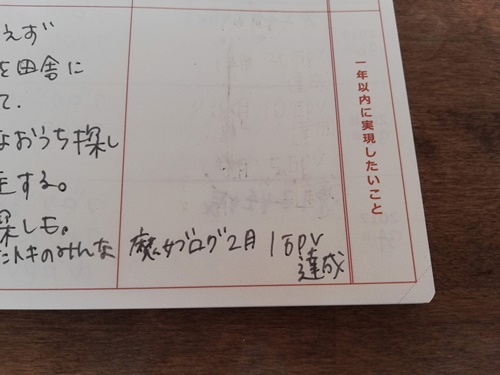 一年以内に実現したいこと
魔女ブログ2月 1万PV
達成
えず
を田舎に
て.
なおうち探し
をする。
探しも。
トキのみんな